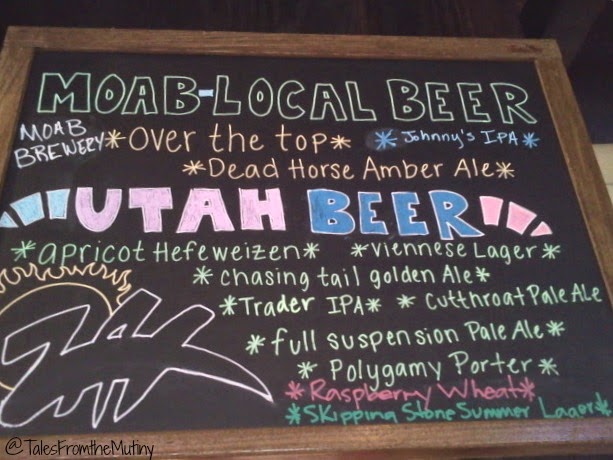 MOAB-LOCAL BEER
MOAB BREWERY
*Over the top*
*Johnny's IPA*
*Dead Horse Amber Ale*
UTAH BEER
*apricot Hefeweizen*
*Viennese Lager*
*chasing tail golden Ale*
*Trader IPA*
*Cutthroat Pale Ale
*full suspension Pale Ale*
*Polygamy Porter*
*Raspberry Wheat*
*Skipping Stone Summer Lager*
@TalesFromtheMutiny